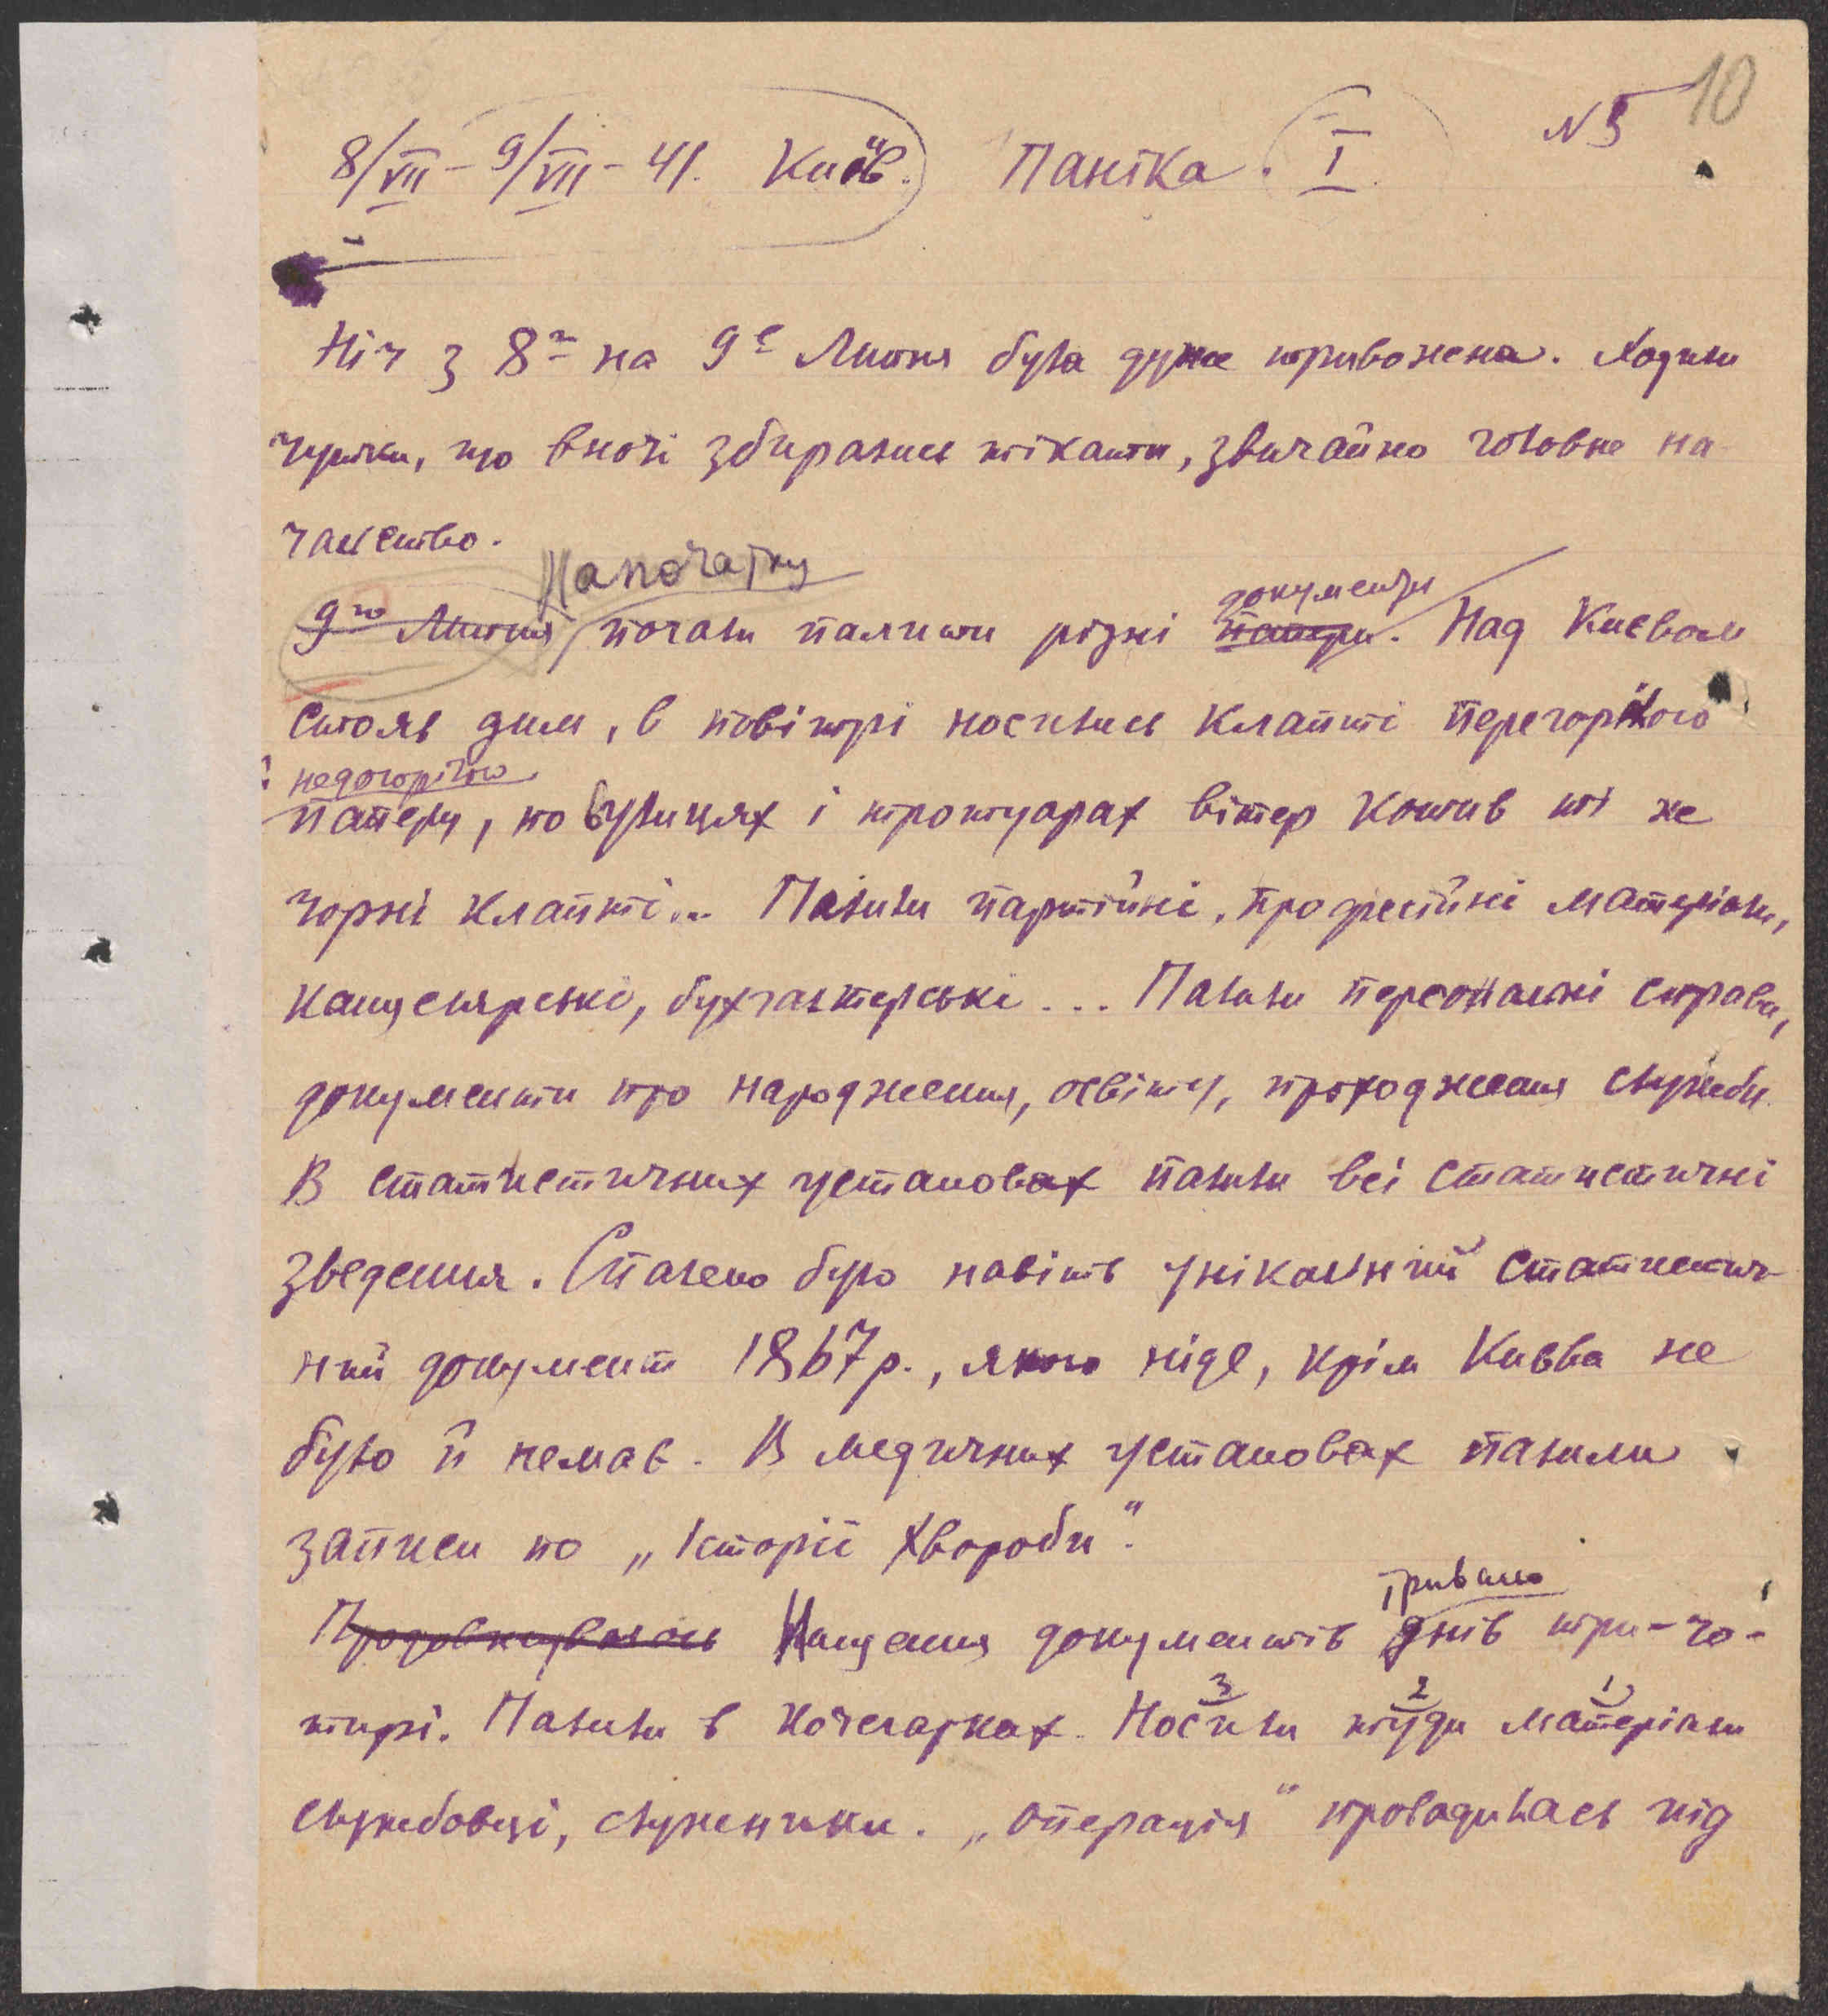 10
№ 3
8/VII – 9/VII – 41. Київ. Паніка. I.
Ніч з 8г на 9е Липня була дуже тривожена. Ходили
чутки, що вночі збирались тікати, звичайно головне на-
чальство.
Напочатку
документи
9го Липня почали палити різні папери. Над Києвом
стояв дим, в повітрі носились клапті перегорілого
і недогорілого
паперу, по вулицях і тротуарах вітер котив ті же
чорні клапті... Палили партійні, професійні матеріали,
канцелярські, бухгалтерські... Палили персональні справи,
документи про народження, освіту, проходження служби.
В статистичних установах палили всі статистичні
зведення. Спалено було навіть унікальний статистич-
ний документ 1867 р., якого ніде, крім Києва не
було й немає. В медичних установах палили
записи по „Історії хвороби".
тривало
Продовжувалось Нищення документів днів три-чо-
3 2 1
тирі. Палили в кочегарках. Носили туди матеріали
службовці, служники. „Операція" провадилась під